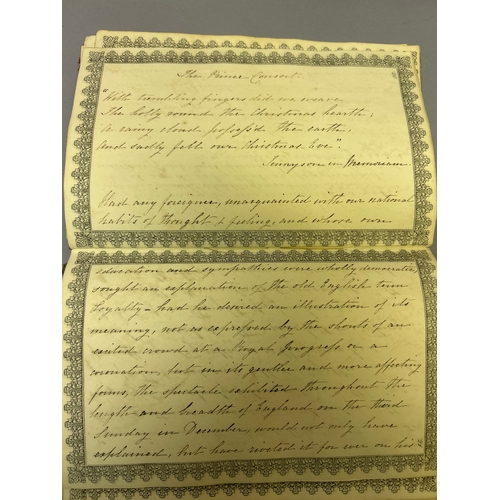 The Prince Consort.
"With trembling fingers did we weave
The holly round the Christmas hearth;
A rainy cloud possess'd the earth,
And sadly fell our Christmas Eve".
Tennyson in Memoriam.
Had any foreigner, unacquainted with our national
habits of thought & feeling, and whose own
education and sympathies were wholly democratic
sought an explanation of the old English term
Loyalty – had he desired an illustration of its
meaning, not as expressed by the shouts of an
excited crowd at a Royal Progress or a
coronation, but in its gentler and more affecting
forms, the spectacle exhibited throughout the
length and breadth of England on the third
Sunday in December, would not only have
explained, but have riveted it for ever on his